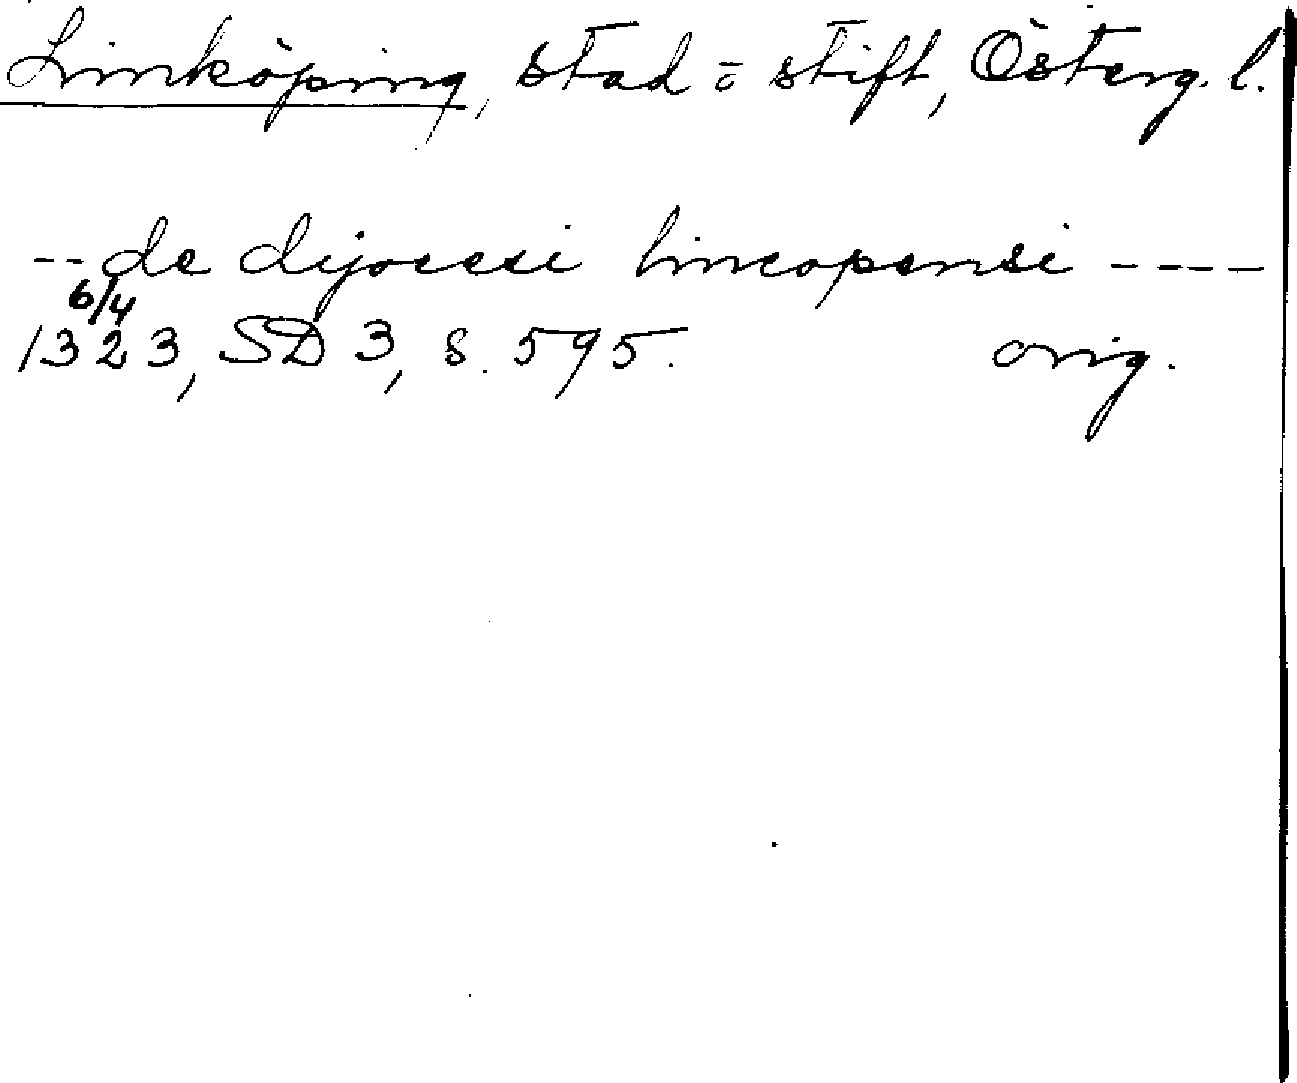 Linköping, stad o stift, Österg. l.
-- de dijocesi lincopensi ----
6/4
1323, SD 3, s. 595. orig.